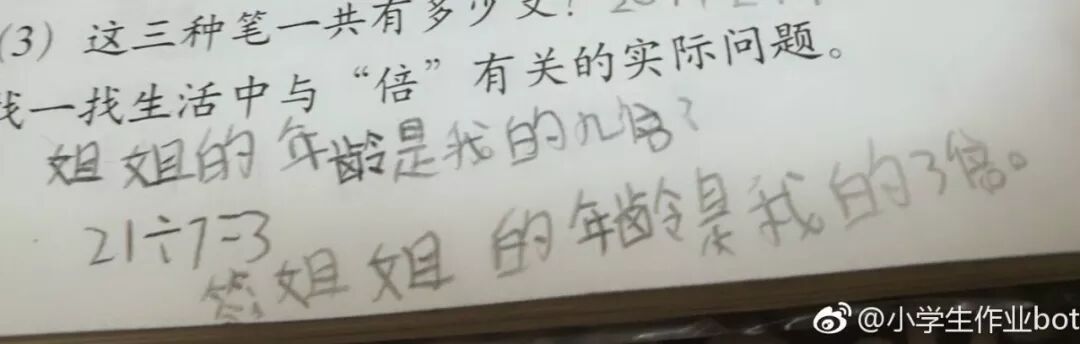 (3) 这三种笔一共有多少支?
找一找生活中与“倍”有关的实际问题。
姐姐的年龄是我的几倍?
21÷7=3
答:姐姐的年龄是我的3倍。
@小学生作业bot